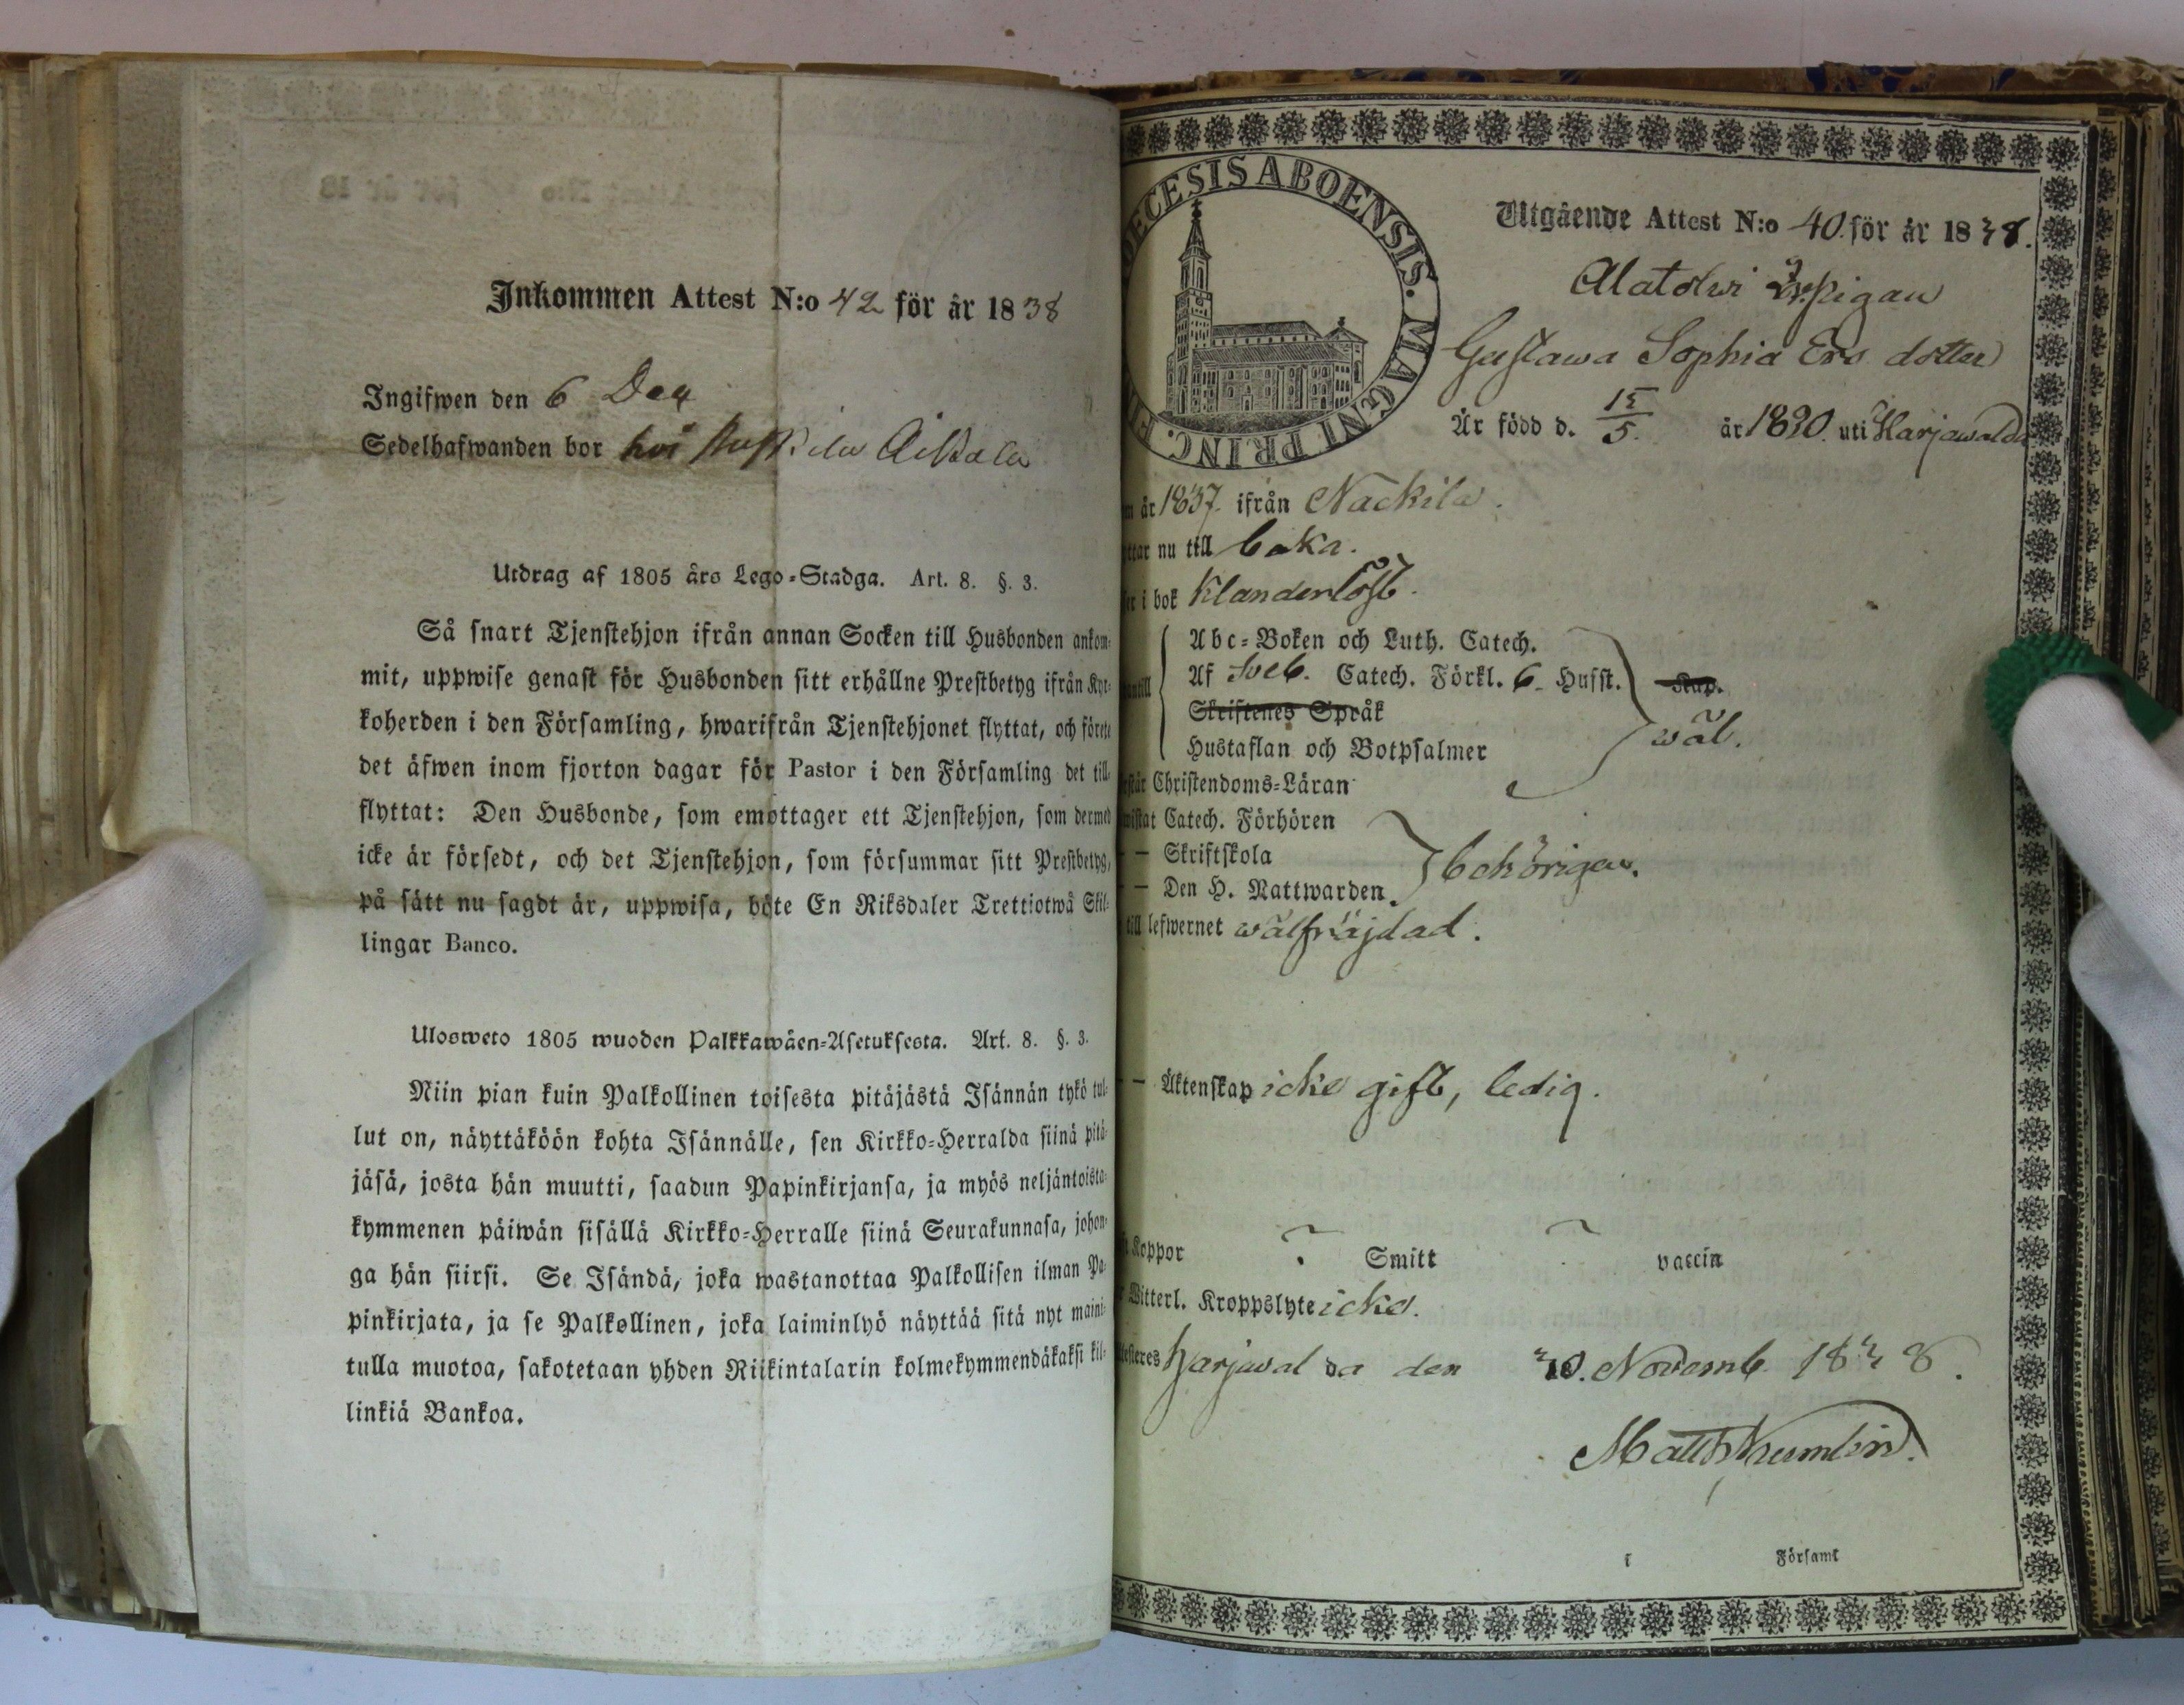 Inkommen Attest N:o 42 för år 1838
Ingifwen den 6 Dec
Sedelhafwanden bor hos
Utdrag af 1805 års Lego-Stadga. Art. 8. §. 3.
Så snart Tjenstehjon ifrån annan Socken till Husbonden ankom-
mit, uppwise genast för Husbonden sitt erhållne Prestbetyg ifrån Kyr-
koherden i den Församling, hwarifrån Tjenstehjonet flyttat, och förete
det äfwen inom fjorton dagar för Pastor i den Församling det till-
flyttat: Den Husbonde, som emottager ett Tjenstehjon, som dermed
icke är försedt, och det Tjenstehjon, som försummar sitt Prestbetyg,
på sätt nu sagdt är, uppwisa, böte En Riksdaler Trettiotwå Skil-
lingar Banco.
Ulosweto 1805 wuoden Palkkawäen-Asetuksesta. Art. 8. §. 3.
Niin pian kuin Palkollinen toisesta pitäjästä Isännän tykö tul-
lut on, näyttäköön kohta Isännälle, sen Kirkko-Herralda siinä pitä-
jäsä, josta hän muutti, saadun Papinkirjansa, ja myös neljäntoista-
kymmenen päiwän sisällä Kirkko-Herralle siinä Seurakunnasa, johon-
ga hän siirsi. Se Isändä, joka wastanottaa Palkollisen ilman Pa-
pinkirjata, ja se Palkollinen, joka laiminlyö näyttää sitä nyt maini-
tulla muotoa, sakotetaan yhden Riikintalarin kolmekymmendäkaksi kil-
linkiä Bankoa.
DECESIS ABOENSIS. MAGNI PRINC. FI
Utgående Attest N:o 40 för år 1838.
Pigan
Gustawa Sophia Ers dotter
Är född d. 15/5. år 1820. uti Harjawalda
år 1837. ifrån Nackila.
nu till baka.
i bok Klanderlöst.
Abc-Boken och Luth. Catech.
Af Sveb. Catech. Förkl. 6. Husst.
Skriftenes Språk
Hustaflan och Botpsalmer
wäl.
Christendoms-Läran
Catech. Förhören
— Skriftskola
— Den H. Nattwarden.
behörigen.
till lefwernet wälfräjdad.
— Äktenskap icke gift, ledig.
Koppor ? Smitt vaccin
Witterl. Kroppslyte icke.
Harjawalda den 30. Novemb. 1838.
Matth Kumlin.
i Församl